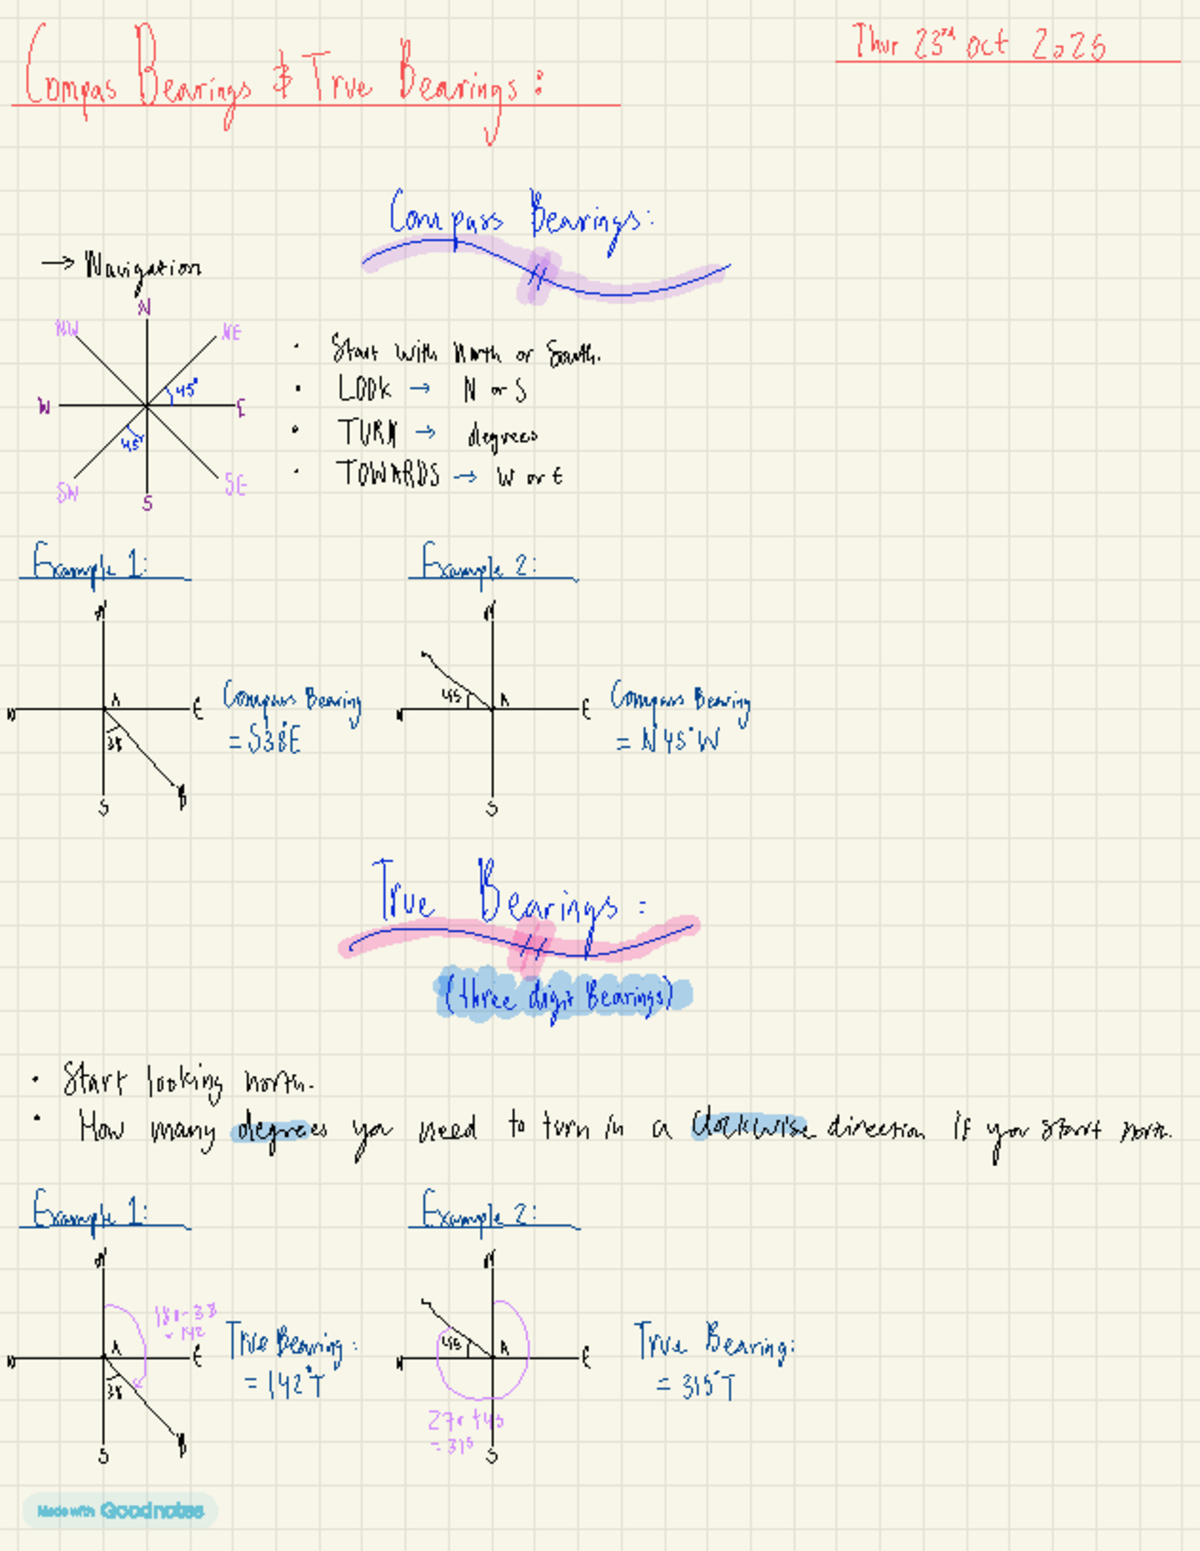 Thur 23rd oct 2025
Compas Bearings & True Bearings:
Compass Bearings:
→ Navigation
N
NW
NE
45°
W
E
45°
SW
SE
S
• Start with North or South.
• LOOK → N or S
• TURN → degrees
• TOWARDS → W or E
Example 1:
N
A
E
38
S
B
Compass Bearing
= S38°E
Example 2:
N
45
A
E
S
Compass Bearing
= N45°W
True Bearings:
(three digit Bearings)
• Start looking north.
• How many degrees you need to turn in a clockwise direction if you start north.
Example 1:
N
180-38
= 142
A
E
38
S
B
True Bearing:
= 142°T
Example 2:
N
45
A
E
270+45
= 315
S
True Bearing:
= 315°T
Made with Goodnotes